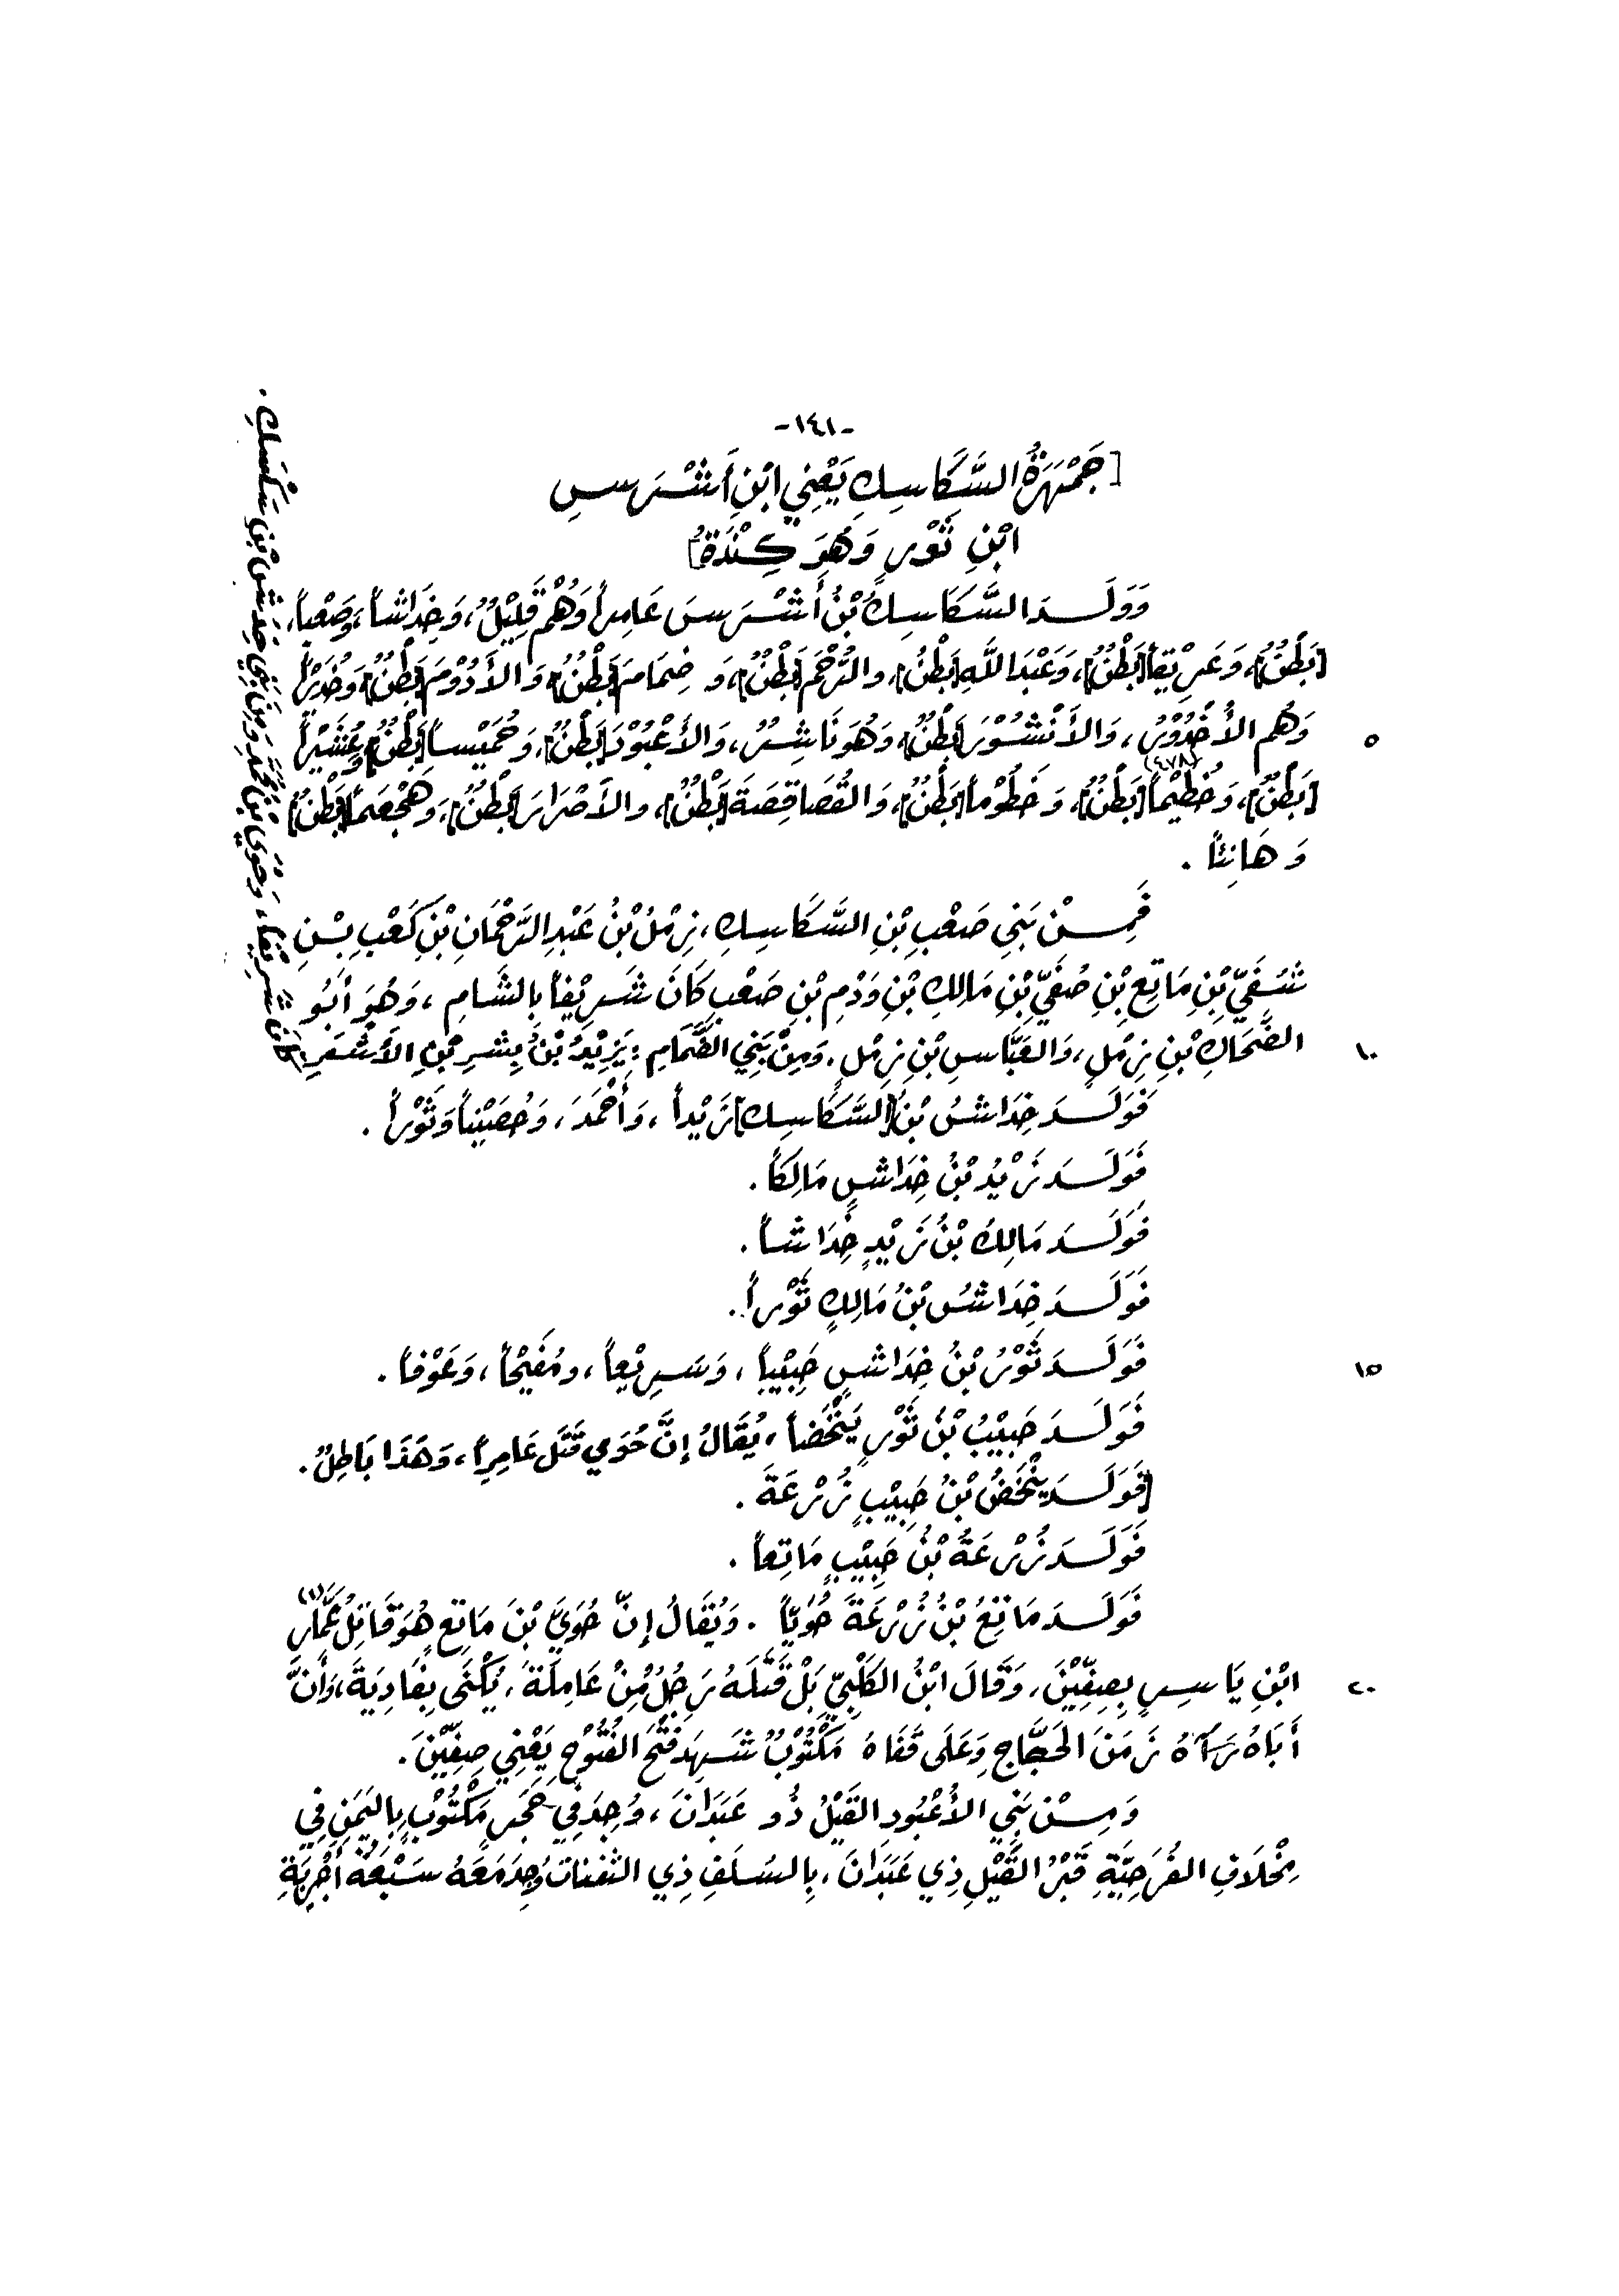 -١٤١-
[جَمْهَرَةُ السَّكَاسِكِ يَعْنِي ابْنَ أَشْرَسِ
ابْنِ ثَوْرٍ وَهُوَ كِنْدَةُ]
وَوَلَدَ السَّكَاسِكُ بْنُ أَشْرَسَ عَامِراً وَهُمْ قَلِيْلٌ، وَخِدَاشاً، وَصَعْباً،
[بَطْنٌ]، وَعَرِيْقاً [بَطْنٌ]، وَعَبْدَ اللَّهِ [بَطْنٌ]، والتُّرْخُمَ [بَطْنٌ]، وَ ضِمَامَ [بَطْنٌ]، وَالأَدْوُمَ [بَطْنٌ] وَخُدَيْراً
وَهُمِ الأُخْدُوْرُ، وَالأَنْشُوْرَ [بَطْنٌ]، وَهُوَ نَاشِرٌ، وَالأُعْبُوْدَ [بَطْنٌ]، وَحُمَيْساً [بَطْنٌ] وَعُشَيْراً
٥
(٤٧٨)
[بَطْنٌ]، وَخُطَيْماً [بَطْنٌ]، وَخَطُوْماً [بَطْنٌ]، وَالقُصَاقِصَةَ [بَطْنٌ]، والأَضْرَارَ [بَطْنٌ]، وَهَجْعَماً [بَطْنٌ]
وَهَانِئاً .
فَمِنْ بَنِي صَعْبِ بْنِ السَّكَاسِكِ، زِمْلُ بْنُ عَبْدِ الرَّحْمَانِ بْنِ كَعْبِ بْنِ
شُفَيِّ بْنِ مَاتِعِ بْنِ صُفَيِّ بْنِ مَالِكِ بْنِ وَدْمِ بْنِ صَعْبٍ كَانَ شَرِيْفاً بالشَّامِ، وَهُوَ أَبُو
الضَّحَاكِ بْنِ زِمْلٍ، وَالعَبَّاسِ بْنِ زِمْلٍ. وَمِنْ بَنِي الضِّمَامِ: يَزِيْدُ بْنُ بِشْرِ بْنِ الأَشْعَرِ
١٠
كَانَ شَرِيْفاً، وَحُوَيُّ بْنُ مُحَمَّدٍ وَمِنْ بَنِي خِدَاشِ بْنِ سَكْسَكِ .
فَوَلَدَ خِدَاشُ بْنُ [السَّكَاسِكِ] زَيْداً، وَأَحْمَدَ، وَحُصَيْناً وَثَوْراً .
فَوَلَدَ زَيْدُ بْنُ خِدَاشٍ مَالِكاً .
فَوَلَدَ مَالِكُ بْنُ زَيْدٍ خِدَاشاً .
فَوَلَدَ خِدَاشُ بْنُ مَالِكٍ ثَوْراً .
فَوَلَدَ ثَوْرُ بْنُ خِدَاشٍ حَبِيْباً، وَسَرِيْعاً، ومُفَيْحاً، وَعَوْفاً .
١٥
فَوَلَدَ حَبِيْبُ بْنُ ثَوْرٍ يَنْخَضاً، يُقَالُ إنَّ حُوَي قَتَلَ عَامِراً، وَهَذَا بَاطِلٌ .
[فَوَلَدَ يَنْخَضُ بْنُ حَبِيْبٍ زُرْعَةَ .
فَوَلَدَ زُرْعَةُ بْنُ حَبِيْبٍ مَاتِعاً .
فَوَلَدَ مَاتِعُ بْنُ زُرْعَةَ حُوَيّاً . وَيُقَالُ إنَّ حُوَيَّ بْنَ مَاتِعٍ هُوَ قَاتِلُ عَمَّارِ (١)
ابْنِ يَاسِرٍ بِصِفِّيْنَ، وَقَالَ ابْنُ الكَلْبِيِّ بَلْ قَتَلَهُ رَجُلٌ مِنْ عَامِلَةَ، يُكْنَى بِغَادِيَةَ، وَأَنَّ
٢٠
أَبَاهُ رَآهُ زَمَنَ الحَجَّاجِ وَعَلَى قَفَاهُ مَكْتُوْبٌ شَهِدَ فَتْحَ الفُتُوْحِ يَعْنِي صِفِّيْنَ .
وَمِنْ بَنِي الأُعْبُودِ القَيْلُ ذُو عَبَدَانَ، وُجِدَ فِي حَجَرٍ مَكْتُوْبٍ بِاليَمَنِ فِي
مِخْلَافِ الفُرَحِيَّةِ قَبْرُ القَيْلِ ذِي عَبَدَانَ، بِالسَلَفِ ذِي الثفنات وُجِدَ مَعَهُ سَبْعَةُ أَجْرِبَةٍ